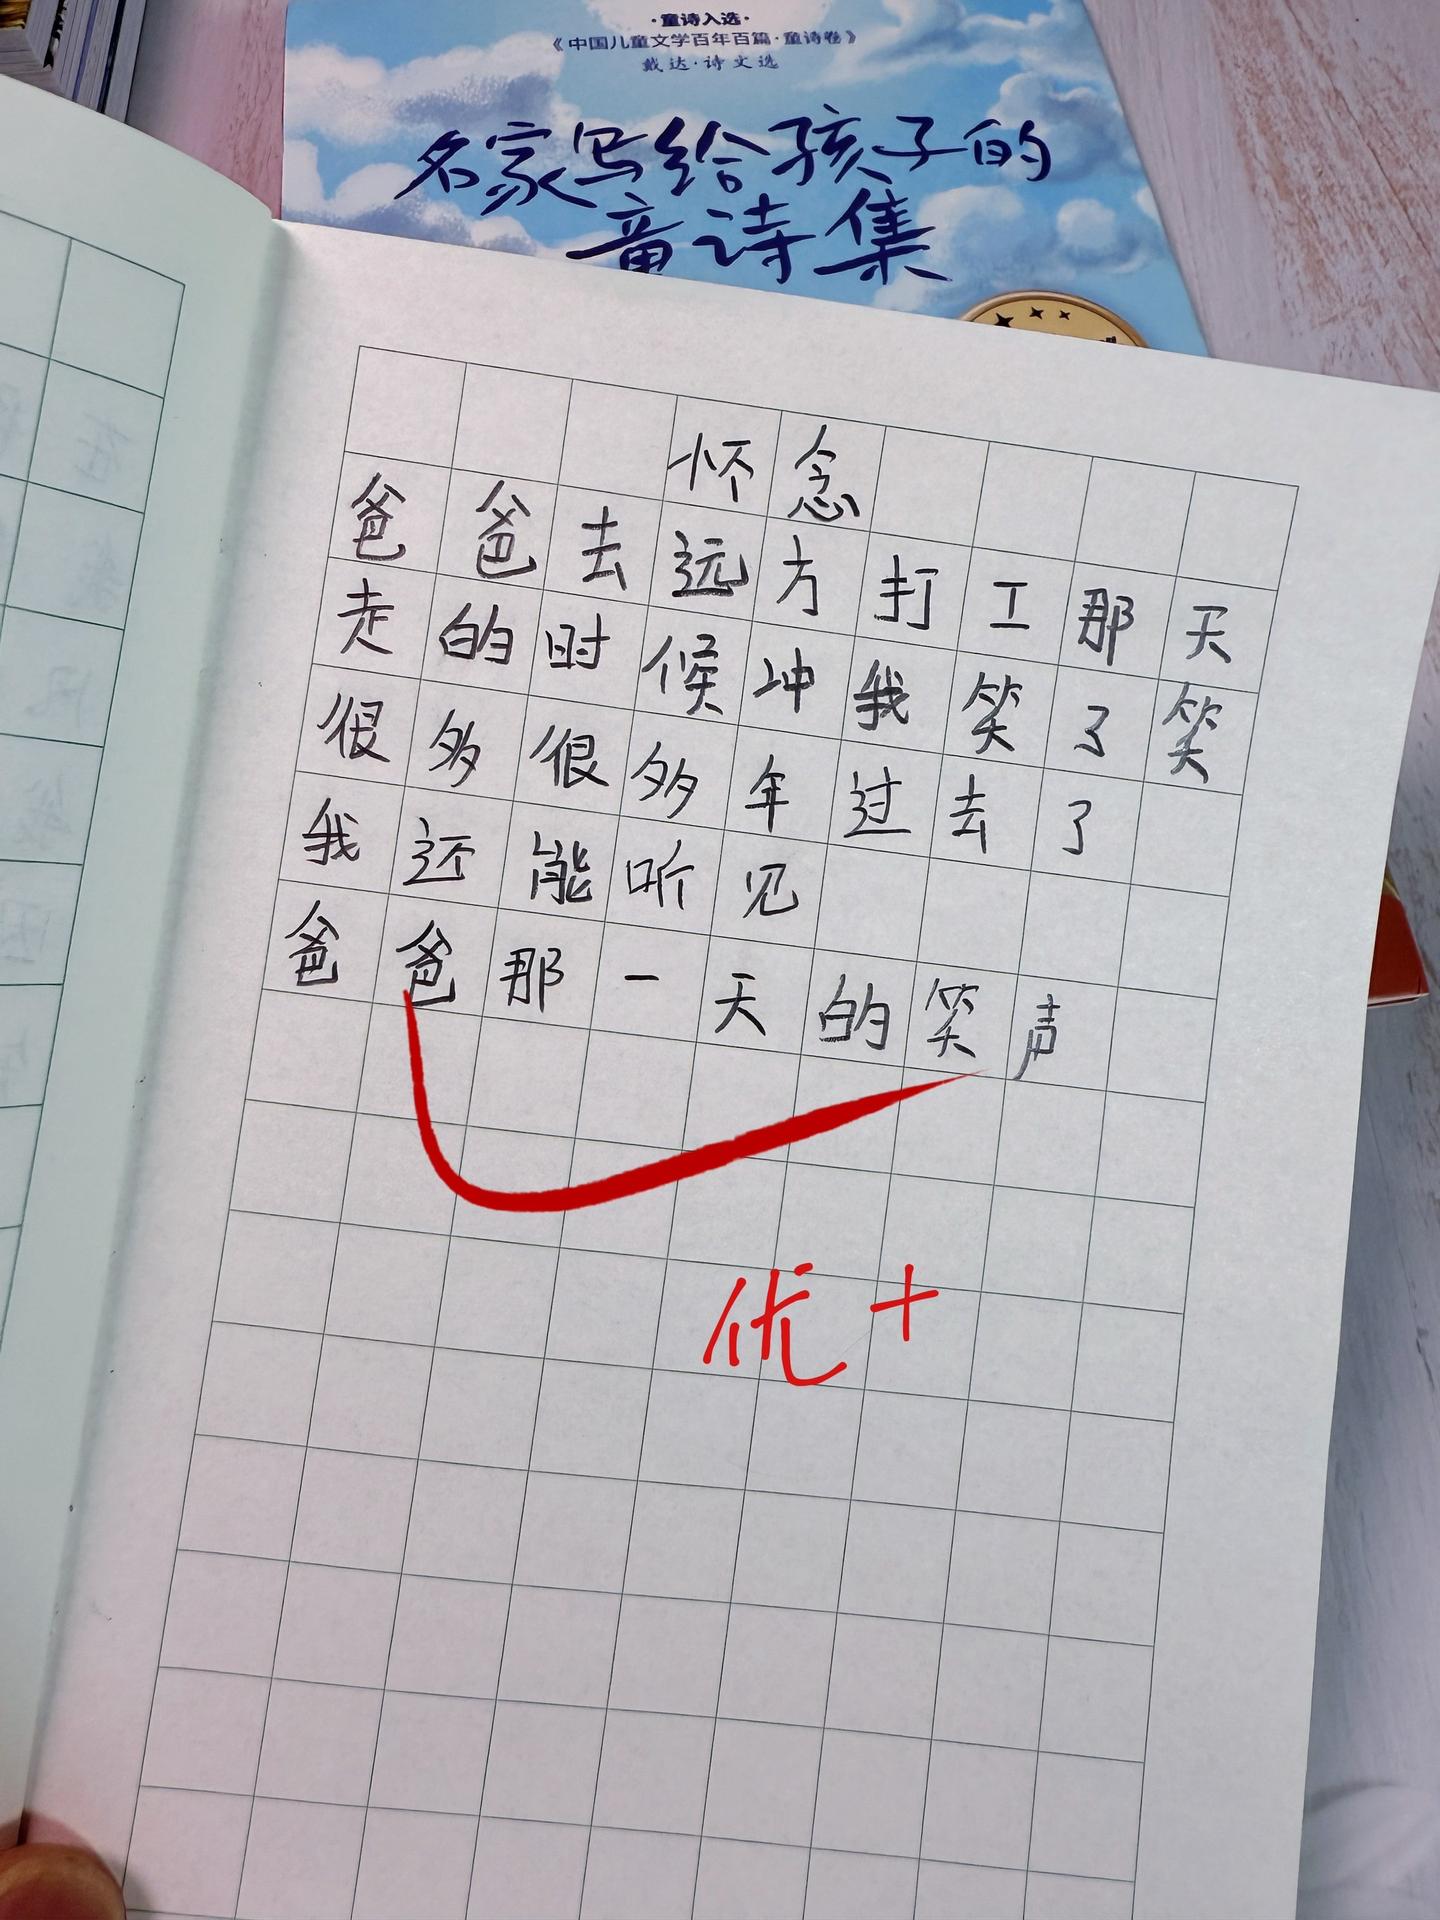 ·童诗入选·
《中国儿童文学百年百篇·童诗卷》
戴达·诗文选
名家写给孩子的
童诗集
怀念
爸爸去远方打工那天
走的时候冲我笑了笑
很多很多年过去了
我还能听见
爸爸那一天的笑声
优+